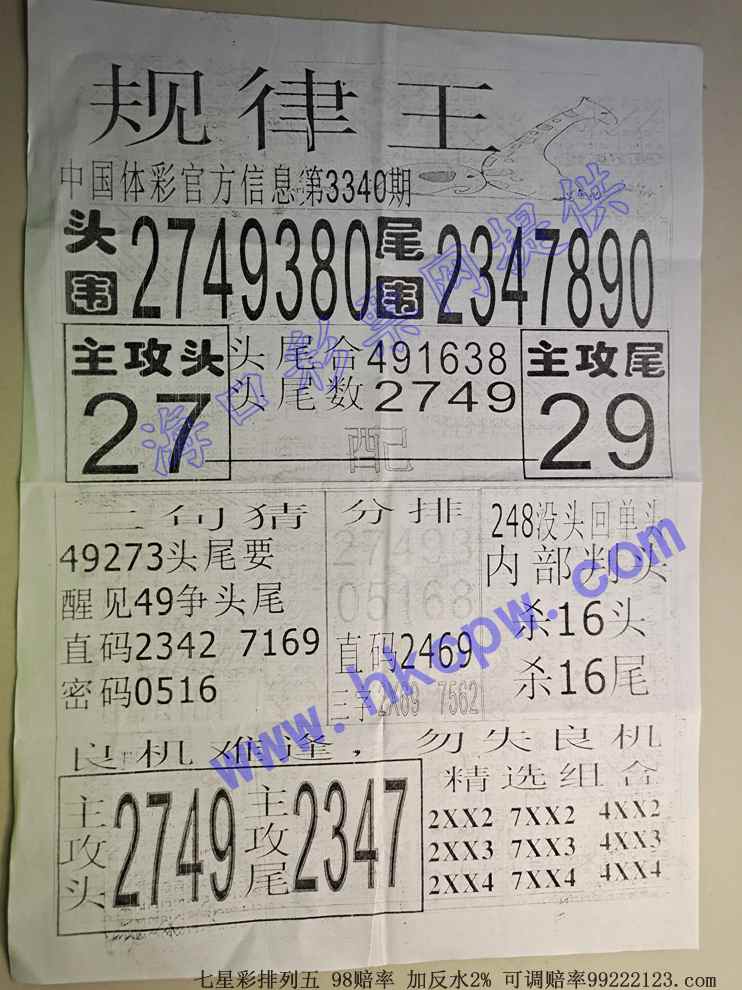 规律王
中国体彩官方信息第3340期
头韦 2749380 尾韦 2347890
主攻头 27
头尾合491638
头尾数2749
配
主攻尾 29
三句猜
49273头尾要
醒见49争头尾
直码2342 7169
密码0516
分排
27493
05168
直码2469
7562
248没头回单头
内部判头
杀16头
杀16尾
良机难逢，勿失良机
主攻头 2749 主攻尾 2347
精选组合
2XX2 7XX2 4XX2
2XX3 7XX3 4XX3
2XX4 7XX4 4XX4
海口彩票网提供
www.hkcpw.com
七星彩排列五 98赔率 加反水2% 可调赔率99222123.com